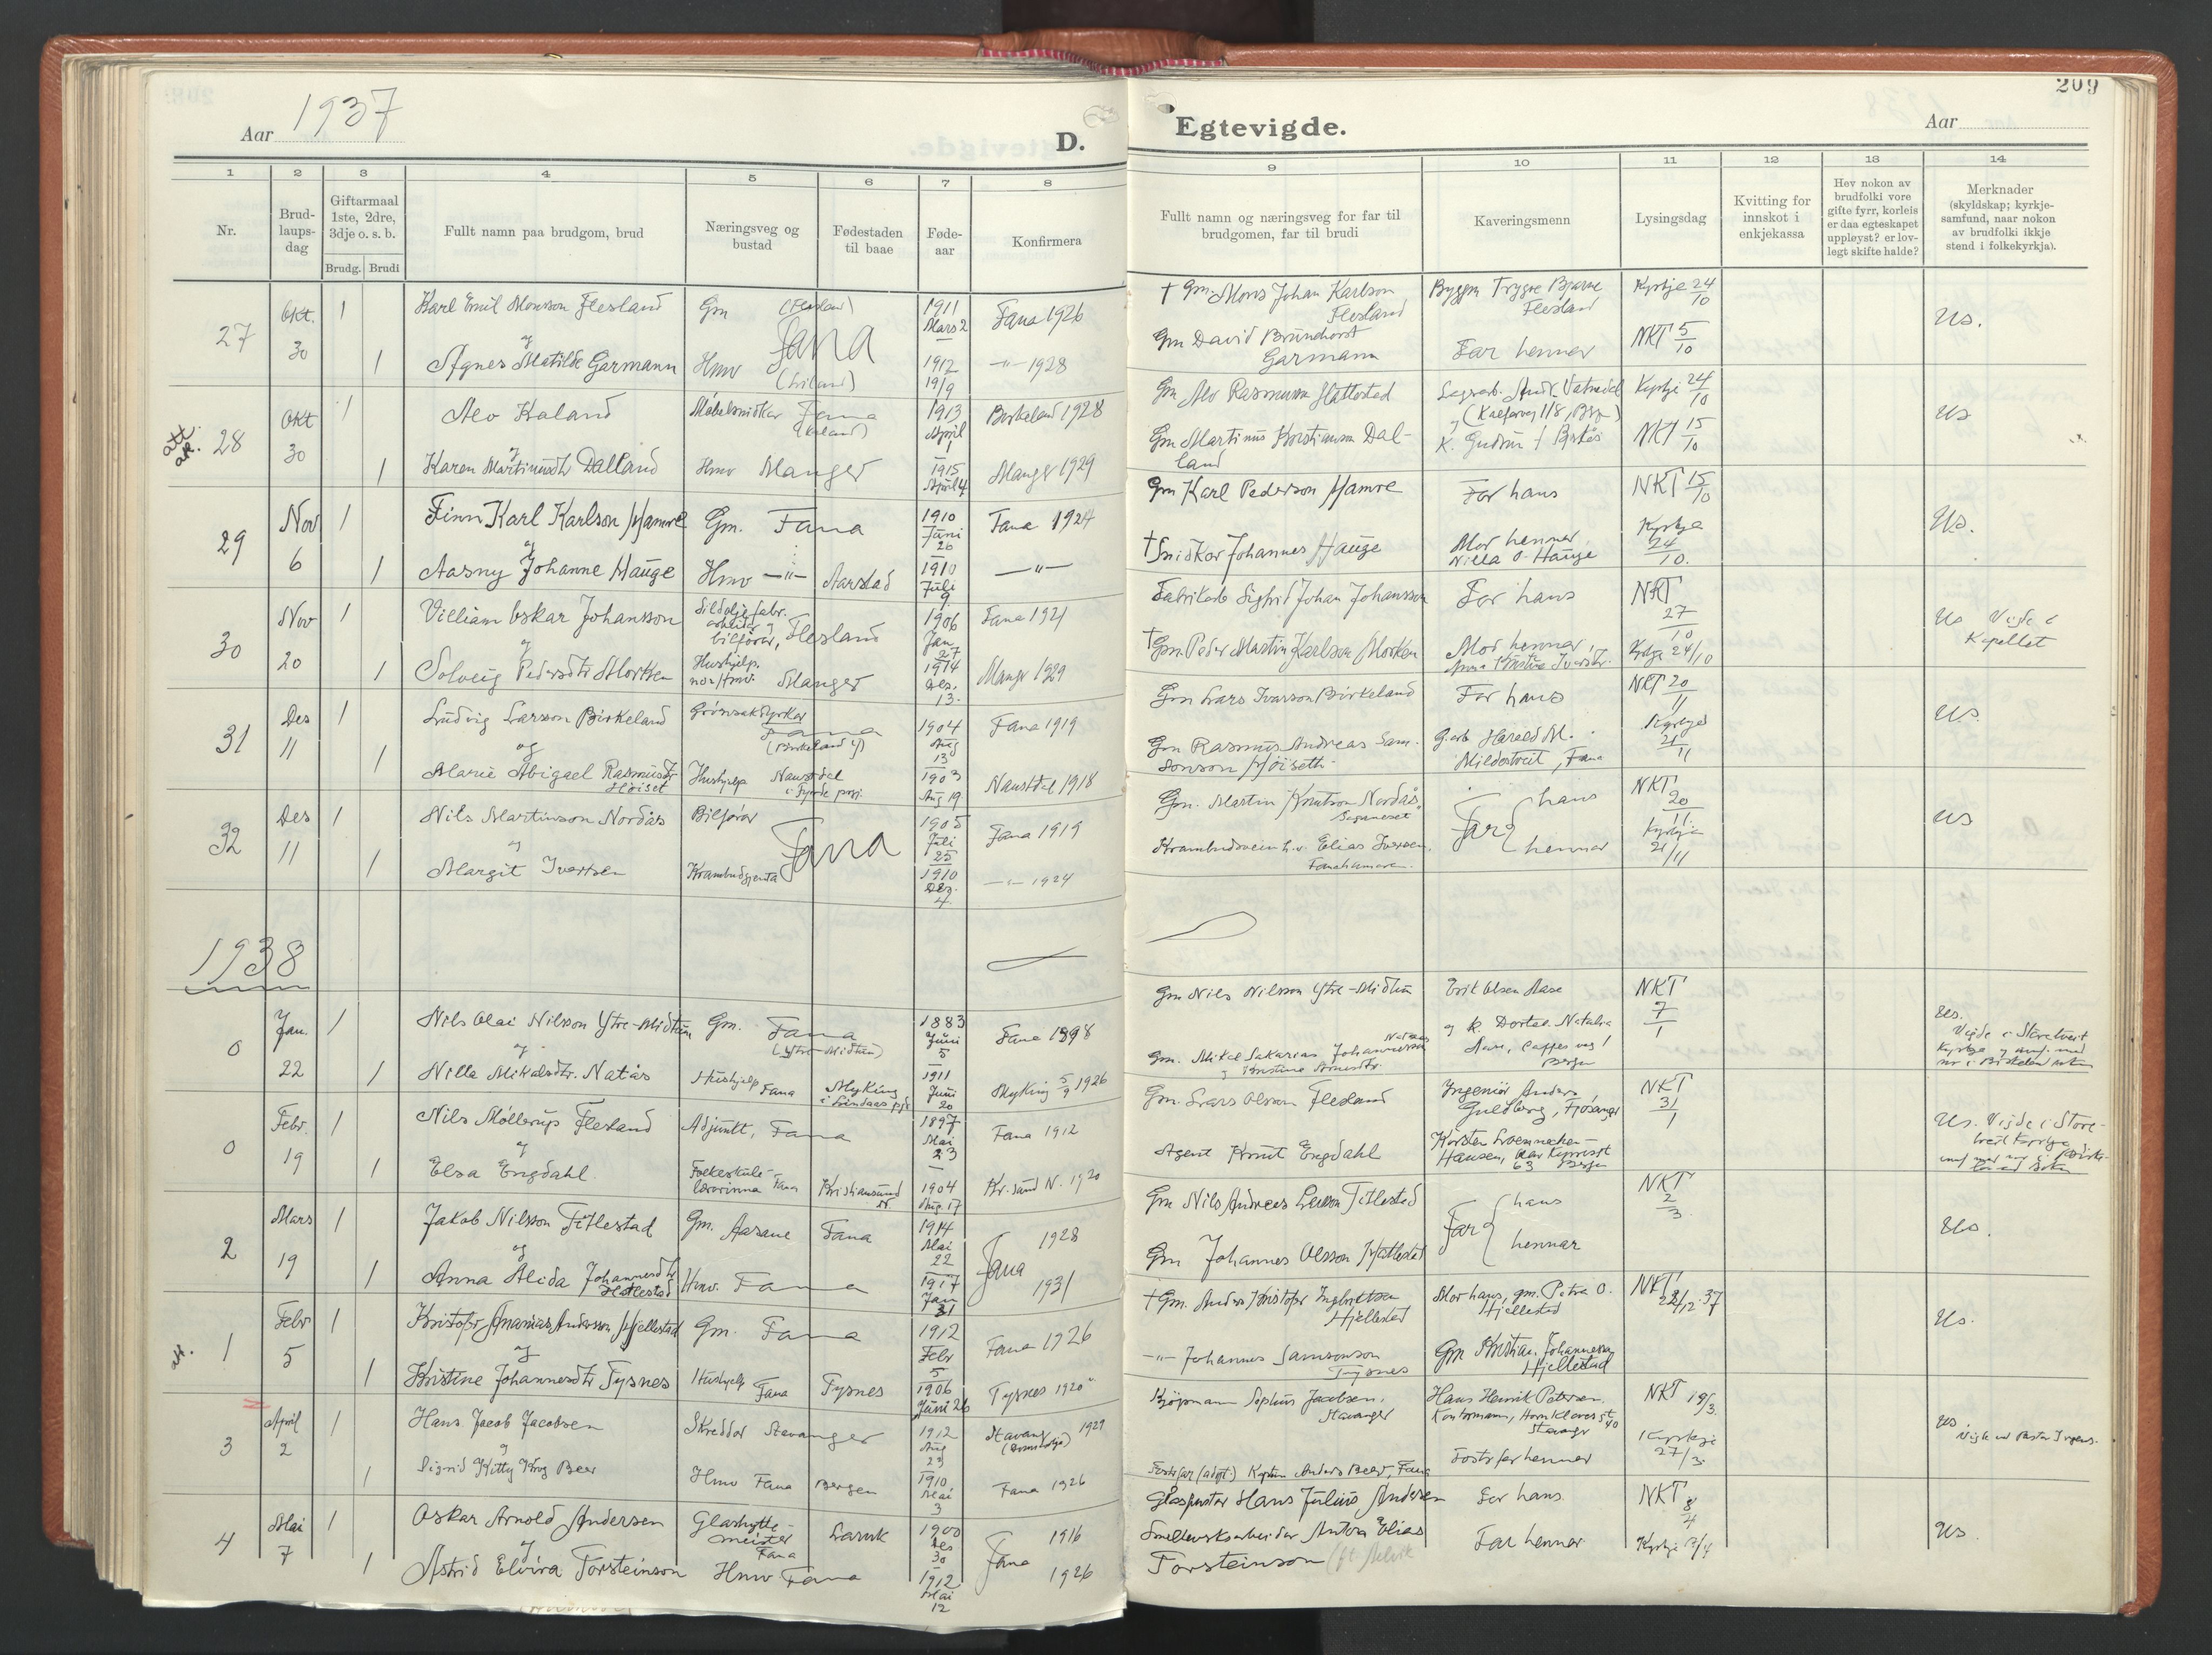 209
Aar 1937
D.
Egtevigde.
Aar
1 2 3 4 5 6 7 8 9 10 11 12 13 14
Nr.
Brud-
laups-
dag
Giftarmaal
1ste, 2dre,
3dje o. s. b.
Brudg. Brudi
Fullt namn paa brudgom, brud
Næringsveg og
bustad
Fødestaden
til baae
Føde-
aar
Konfirmera
Fullt namn og næringsveg for far til
brudgomen, far til brudi
Kaveringsmenn
Lysingsdag
Kvitting for
innskot i
enkjekassa
Hev nokon av
brudfolki vore
gifte fyrr, korleis
er daa egteskapet
uppløyst? er lov-
legt skifte halde?
Merknader
(skyldskap; kyrkje-
samfund, naar nokon
av brudfolki ikkje
stend i folkekyrkja).
27 Okt. 30 1 Karl Emil Monsson Flesland Gm (Flesland) Fana 1911 Mars 2 Fana 1926 † Gm. Mons Johan Karlson Flesland Byggm Trygve Bjarne Flesland Kyrkje 24/10 Us.
og
1 Agnes Matilde Garmann Hmv 1912 19/9 —"— 1928 Gm David Brunchorst Garmann Far hennar NKT 5/10
att. 28 Okt 30 1 Alv Kaland Møbelsnidkar Fana (Kaland) 1913 April 1 Birkeland 1928 Gm Alv Rasmusson Hattestad Kyrkje 24/10 Us
og
1 Karen Martinusdtr Dalland Hmv Manger 1915 April 4 Manger 1929 Gm Martinus Kristianson Dalland NKT 15/10
29 Nov 6 1 Finn Karl Karlson Hamre Gm. Fana 1910 Juni 20 Fana 1924 Gm Karl Pederson Hamre Far hans NKT 15/10 Us.
og
1 Aasny Johanne Hauge Hmv —"— Aarstad 1910 Juli 9 —"— † Snidkar Johannes Hauge Mor hennar, Nilla O. Hauge Kyrkja 24/10.
30 Nov 20 1 Villiam Oskar Johansson Sildoljefabr. arbeidar og bilførar, Flesland 1906 Jan 27 Fana 1921 Fabrikarb Sigfrid Johan Johansson Far hans NKT 27/10 Us Vigde i Kapellet
og
1 Solveig Pedersdtr Morken Hushjelp Manger 1914 Des. 13. Manger 1929 † Gm. Peder Martin Karlson Morken Mor hennar, Kyrkje 24/10
31 Des 11 1 Ludvig Larsson Birkeland Grønsakdyrkar Fana (Birkeland) 1904 Aug 13 Fana 1919 Gm Lars Ivarson Birkeland Far hans NKT 20/11 Us.
og
1 Marie Abigael Rasmusdtr Høiset Hushjelp Naustdal 1903 Aug 19 Naustdal 1918 Gm Rasmus Andreas Samsonson Høiseth G.arb Harald M. Mildestveit, Fana Kyrkje 21/11
32 Des 11 1 Nils Martinson Nordås Bilførar Fana 1905 Juli 25 Fana 1919 Gm. Martin Knutson Nordås, Far hans NKT 20/11. Us
og
1 Margit Ivertsen Krambudgjenta 1910 Des. 4. —"— 1924 Krambudsvein h.v. Elias Iversen, Fanahamaren. hennar Kyrkja 21/11
1938
0 Jan. 22 1 Nils Olai Nilsson Ytre-Midtun Gm. Fana (Ytre-Midtun) 1883 Juni 5 Fana 1898 Gm Nils Nilsson Ytre-Midtun Erik Olsen Aase NKT 7/1 Us.
og
1 Nilla Mikalsdtr. Natås Hushjelp Fana Myking i Lindaas pgd 1911 Juni 20 Myking 5/9 1926 Gm. Mikal Sakarias Johannesson Natås og k. Dortea Natalia Aase, Bergen Vigde i Storetveit Kyrkje
0 Febr. 19 1 Nils Möllerup Flesland Adjunkt, Fana 1897 Mai 23 Fana 1912 Gm. Lars Olsson Flesland Ingeniør Anders Guldberg, Fjøsanger NKT 31/1 Us. Vigde i Storetveit Kyrkje
og
1 Elsa Engdahl. Folkeskule-lærarinna Fana Kristiansund N. 1904 Aug. 17 Kr.sund N. 1920 Agent Knut Engdahl Hansen, Bergen
2 Mars 19 1 Jakob Nilsson Titlestad Gm. Aasane Fana 1914 Mai 22 Fana 1928 Gm Nils Andreas Larsson Titlestad Far hans NKT 2/3. Us.
og
1 Anna Alida Johannesdtr Hatlestad Hmv. Fana 1917 Jan 31 1931 Gm Johannes Olsson Hatlestad hennar
att. 1 Febr 5 1 Kristofer Ananias Andersson Hjellestad Gm. Fana 1912 Febr 5 Fana 1926 † Gm. Anders Kristofer Ingebretson Hjellestad Mor hans, gm. Petra O. Hjellestad NKT 28/12.37 Us.
og
1 Kristine Johannesdtr Tysnes Hushjelp Fana Tysnes 1906 Juni 26 Tysnes 1920 —"— Johannes Samsonson Tysnes Gm Kristian Johannesson Hjellestad
3 April 2 1 Hans Jacob Jacobsen Skreddar Stavanger 1912 Aug 23 Stavang 1927 Kjøpmann Sophus Jacobsen, Stavanger Hans Henrik Petersen. Kontormann, Stavanger NKT 19/3. Us.
og
1 Sigrid Kitty Krog Beer Hmv Fana Bergen 1910 Mai 3 Fana 1926 Fosterfar (adopt.) Kaptein Anders Beer, Fana Fosterfar hennar Kyrkje 27/3.
4 Mai 7 1 Oskar Arnold Andersen Glashytte-meister Fana Larvik 1900 Des 30 Fana 1916 Glaspuster Hans Julius Andersen Far hans. NKT 8/4 Us
og
1 Astrid Elvira Torsteinson Hmv Fana 1912 Mai 12 1926 Smelteverksarbeidar Anton Elias Torsteinson Far hennar Kyrkje